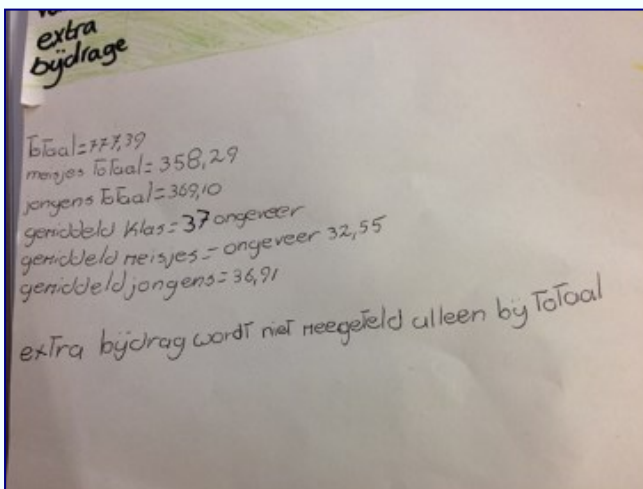 extra
bijdrage
Totaal=777,39
meisjes Totaal=358,29
jongens Totaal=369,10
gemiddeld klas=37 ongeveer
gemiddeld meisjes=ongeveer 32,55
gemiddeld jongens=36,91
extra bijdrag wordt niet meegeteld alleen bij Totaal